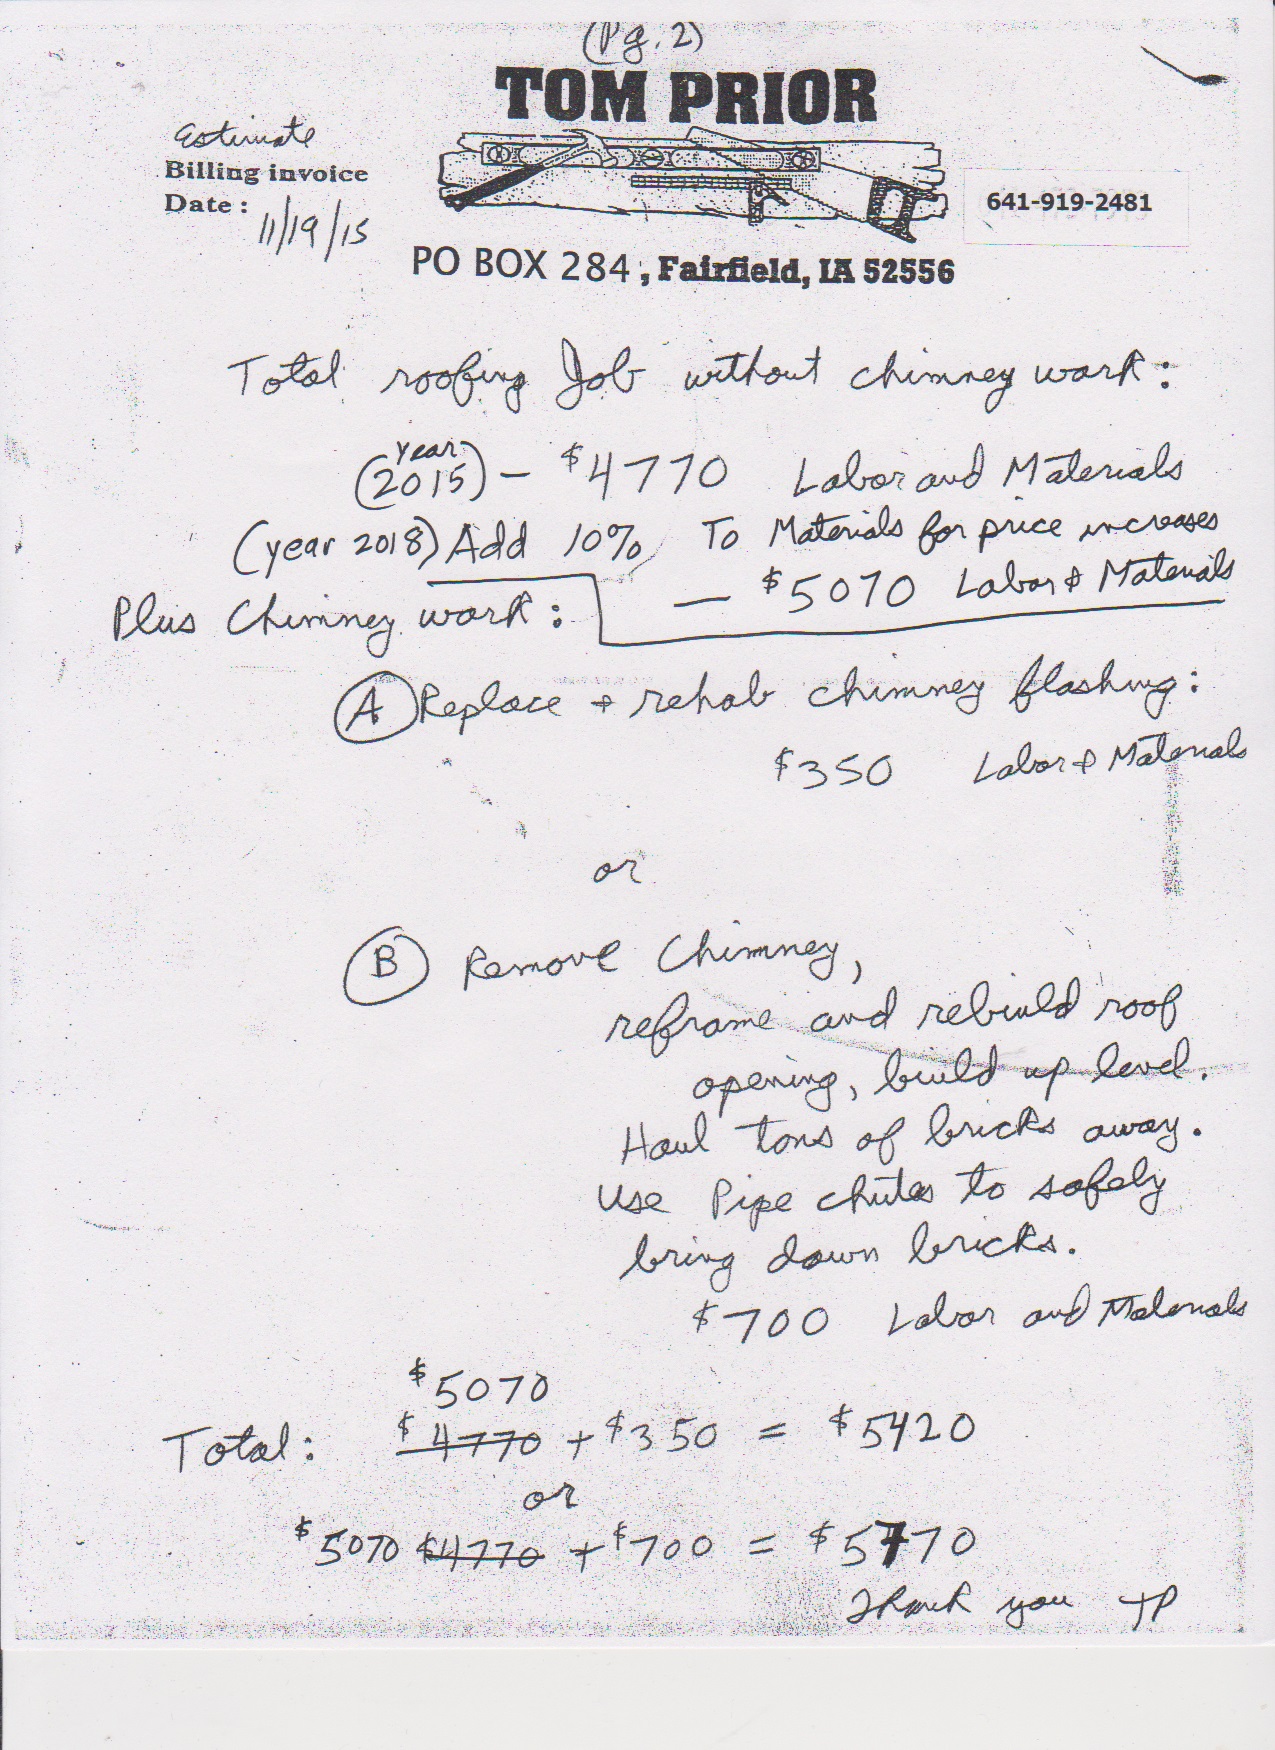 (Pg. 2)
TOM PRIOR
Estimate
Billing invoice
Date : 11/19/15
641-919-2481
PO BOX 284, Fairfield, IA 52556
Total roofing Job without chimney work:
(year 2015) - $4770 Labor and Materials
(year 2018) Add 10% To Materials for price increases
— $5070 Labor & Materials
Plus Chimney work:
(A) Replace + rehab chimney flashing:
$350 Labor & Materials
or
(B) Remove Chimney,
reframe and rebuild roof
opening, build up level.
Haul tons of bricks away.
Use Pipe chutes to safely
bring down bricks.
$700 Labor and Materials
$5070
Total: $4770 + $350 = $5420
or
$5070 $4770 + $700 = $5770
Thank you TP